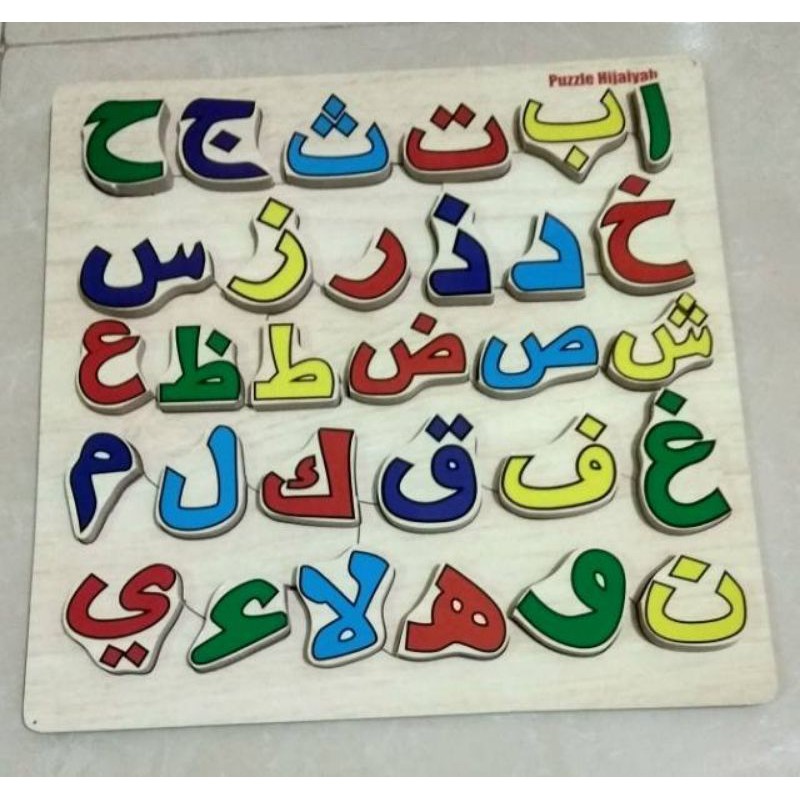 Puzzle Hijaiyah
ا ب ت ث ج ح
خ د ذ ر ز س
ش ص ض ط ظ ع
غ ف ق ك ل م
ن و ه لا ء ي